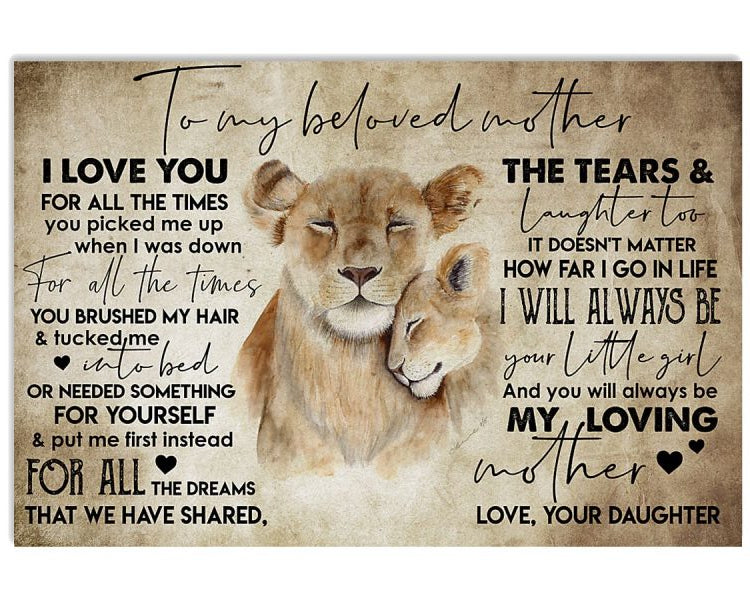 To my beloved mother
I LOVE YOU
FOR ALL THE TIMES
you picked me up
when I was down
For all the times
YOU BRUSHED MY HAIR
& tucked me
into bed
OR NEEDED SOMETHING
FOR YOURSELF
& put me first instead
FOR ALL THE DREAMS
THAT WE HAVE SHARED,
THE TEARS &
laughter too
IT DOESN'T MATTER
HOW FAR I GO IN LIFE
I WILL ALWAYS BE
your little girl
And you will always be
MY LOVING
mother
LOVE, YOUR DAUGHTER